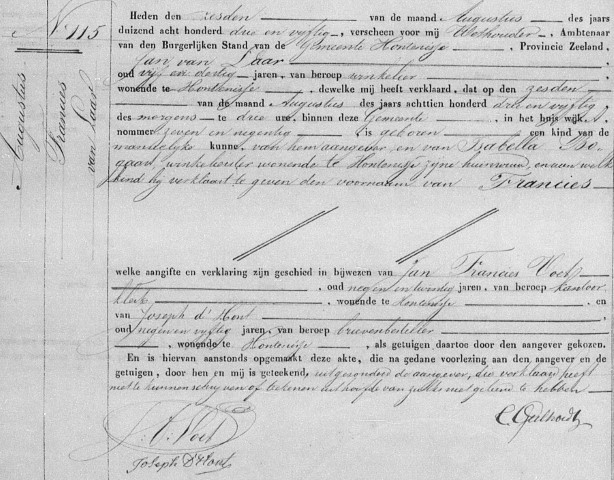 No 115
Augustus
Francies
van Laar
Heden den zesden van de maand Augustus des jaars
duizend acht honderd drie en vyftig, verscheen voor mij Wethouder, Ambtenaar
van den Burgerlijken Stand van de Gemeente Hontenisse, Provincie Zeeland.
Jan van Laar
oud vyf en dertig jaren, van beroep winkelier
wonende te Hontenisse, dewelke mij heeft verklaard, dat op den zesden
van de maand Augustus des jaars achttien honderd drie en vyftig,
des morgens te drie ure, binnen deze Gemeente in het huis wijk
nommer zeven en negentig is geboren een kind van de
mannelyke kunne, van hem aangever en van Izabella Bo
gaart, winkelierster wonende te Hontenisse zyne huisvrouw, en aan welk
kind hy verklaart te geven den voornaam van Francies
welke aangifte en verklaring zijn geschied in bijwezen van Jan Francies Voet
, oud negen en twintig jaren, van beroep kantoor
klerk, wonende te Hontenisse en
van Joseph d'Hont
oud negen en vyftig jaren, van beroep brievenbesteller
, wonende te Hontenisse, als getuigen daartoe door den aangever gekozen.
En is hiervan aanstonds opgemaakt deze akte, die na gedane voorlezing aan den aangever en de
getuigen, door hen en mij is geteekend, uitgezonderd de aangever, die verklaard heeft
niet te kunnen schryven of teekenen uit hoofde van zulks niet geleerd te hebben
Voet
Joseph D'Hont